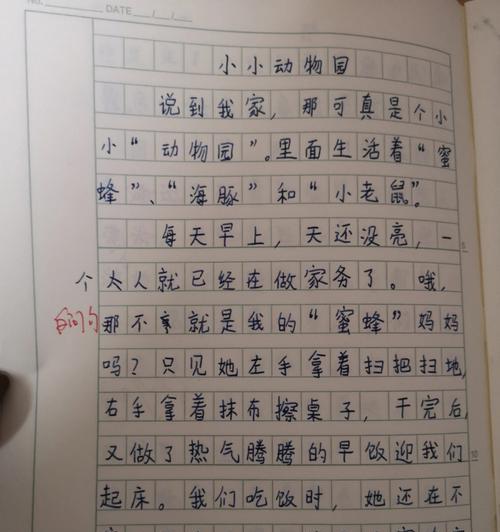 No.
DATE
小小动物园
说到我家，那可真是个小
小“动物园”。里面生活着“蜜
蜂”、“海豚”和“小老鼠”。
每天早上，天还没亮，一
个大人就已经在做家务了。哦，
反问句
那不就是我的“蜜蜂”妈妈
吗？只见她左手拿着扫把扫地，
右手拿着抹布擦桌子，干完后，
又做了热气腾腾的早饭迎我们
起床。我们吃饭时，她还在不